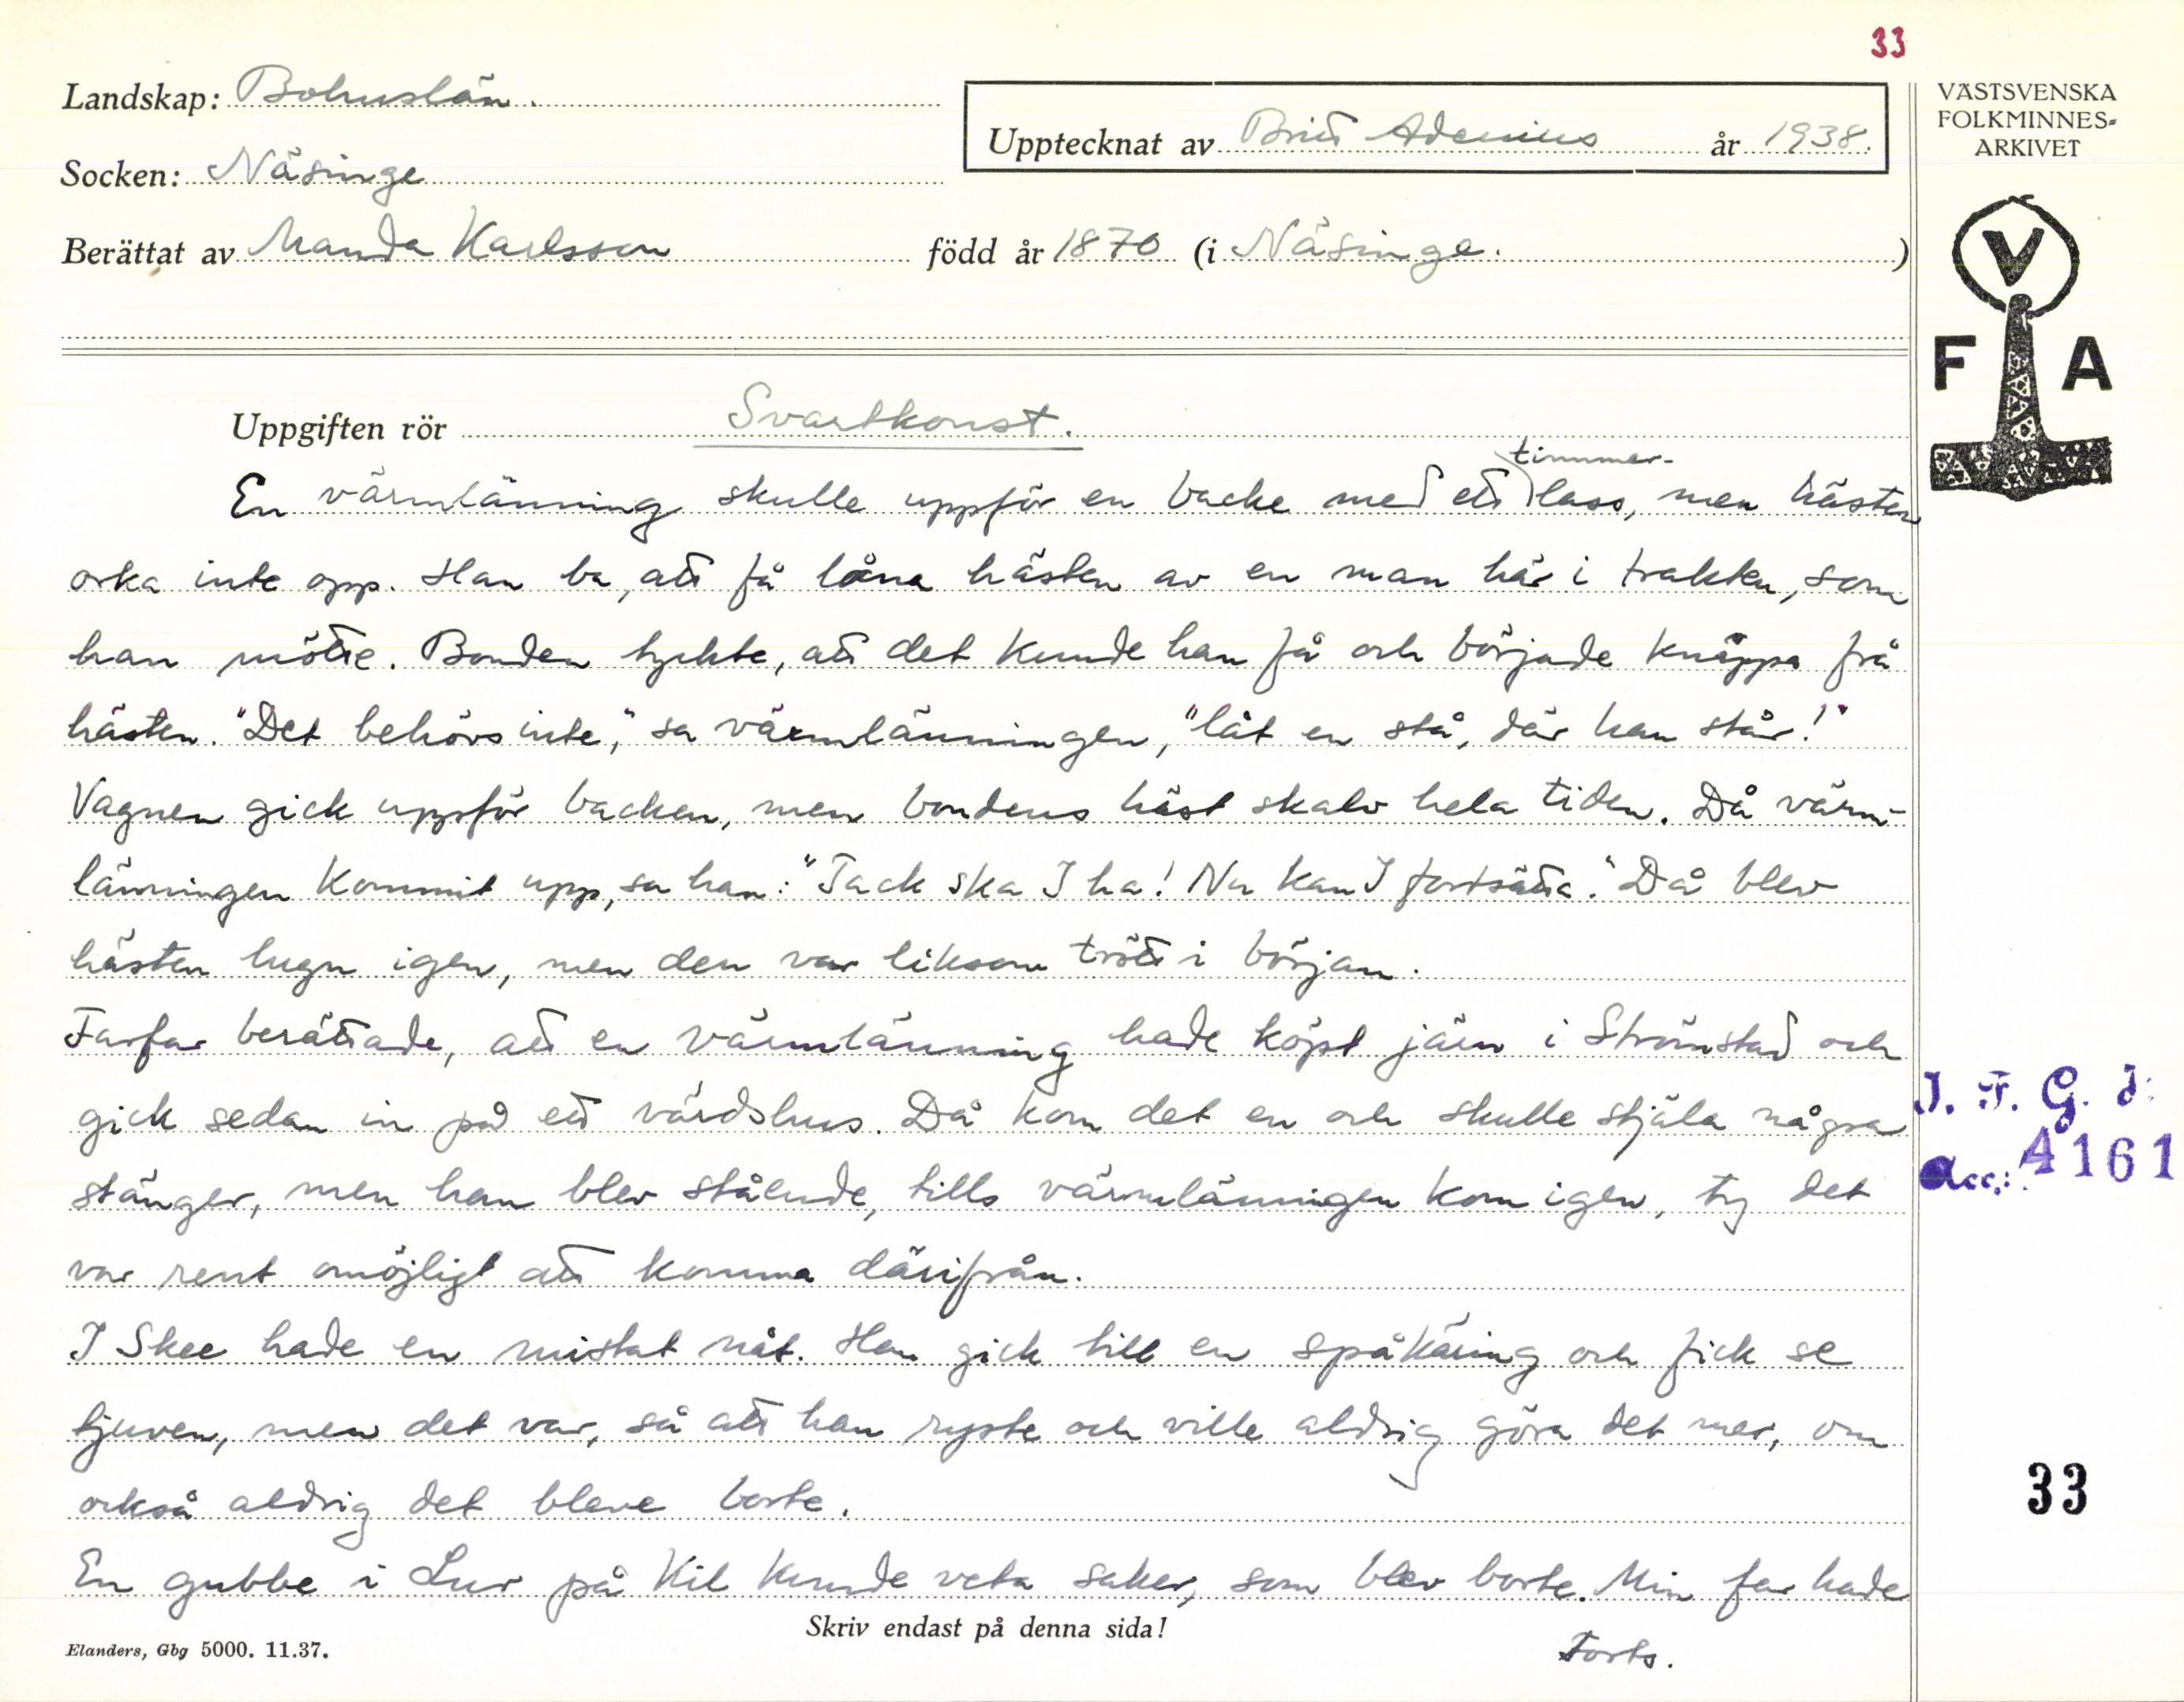 33
Landskap: Bohuslän.
Upptecknat av Britt Adenius år 1938.
VÄSTSVENSKA
FOLKMINNES-
ARKIVET
Socken: Näsinge
Berättat av Manda Karlsson född år 1870 (i Näsinge. )
V
F A
Uppgiften rör Svartkonst.
timmer-
En värmlänning skulle uppför en backe med ett lass, men hästen
orka inte opp. Han ba, att få låna hästen av en man här i trakten, som
han mötte. Bonden tyckte, att det kunde han få och började knäppa frå
hästen. "Det behövs inte," sa värmlänningen, "låt en stå, där han står!"
Vagnen gick uppför backen, men bondens häst skalv hela tiden. Då värm-
länningen kommit upp, sa han: "Tack ska I ha! Nu kan I fortsätta." Då blev
hästen lugn igen, men den var liksom trött i början.
Farfar berättade, att en värmlänning hade köpt järn i Strömstad och
gick sedan in på ett värdshus. Då kom det en och skulle stjäla några
stänger, men han blev stående, tills värmlänningen kom igen, ty det
var rent omöjligt att komma därifrån.
I Skee hade en mistat nåt. Han gick till en spåkäring och fick se
tjuven, men det var, så att han ryste och ville aldrig göra det mer, om
också aldrig det bleve borte.
En gubbe i Lur på Kil kunde veta saker, som blev borte. Min far hade
I. F. G. s:
Acc.: 4161
33
Skriv endast på denna sida!
Forts.
Elanders, Gbg 5000. 11.37.